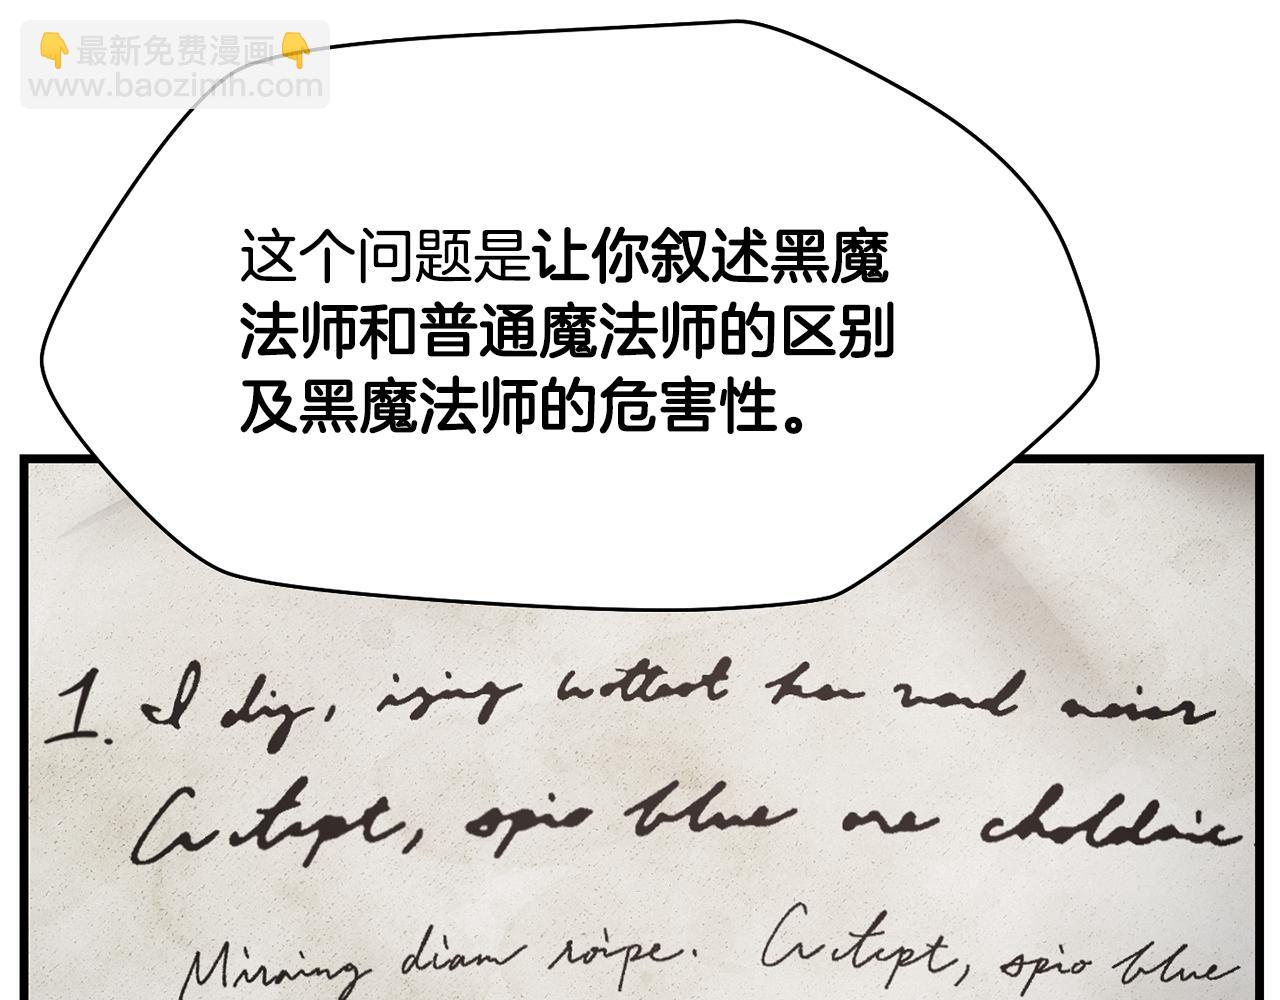 👇最新免费漫画👇
www.baozimh.com
这个问题是让你叙述黑魔
法师和普通魔法师的区别
及黑魔法师的危害性。
1. I dig, izing wottest her vard
Cutept, spio blue are choldaie
Miraing diam roipe. Cutept, spio blue